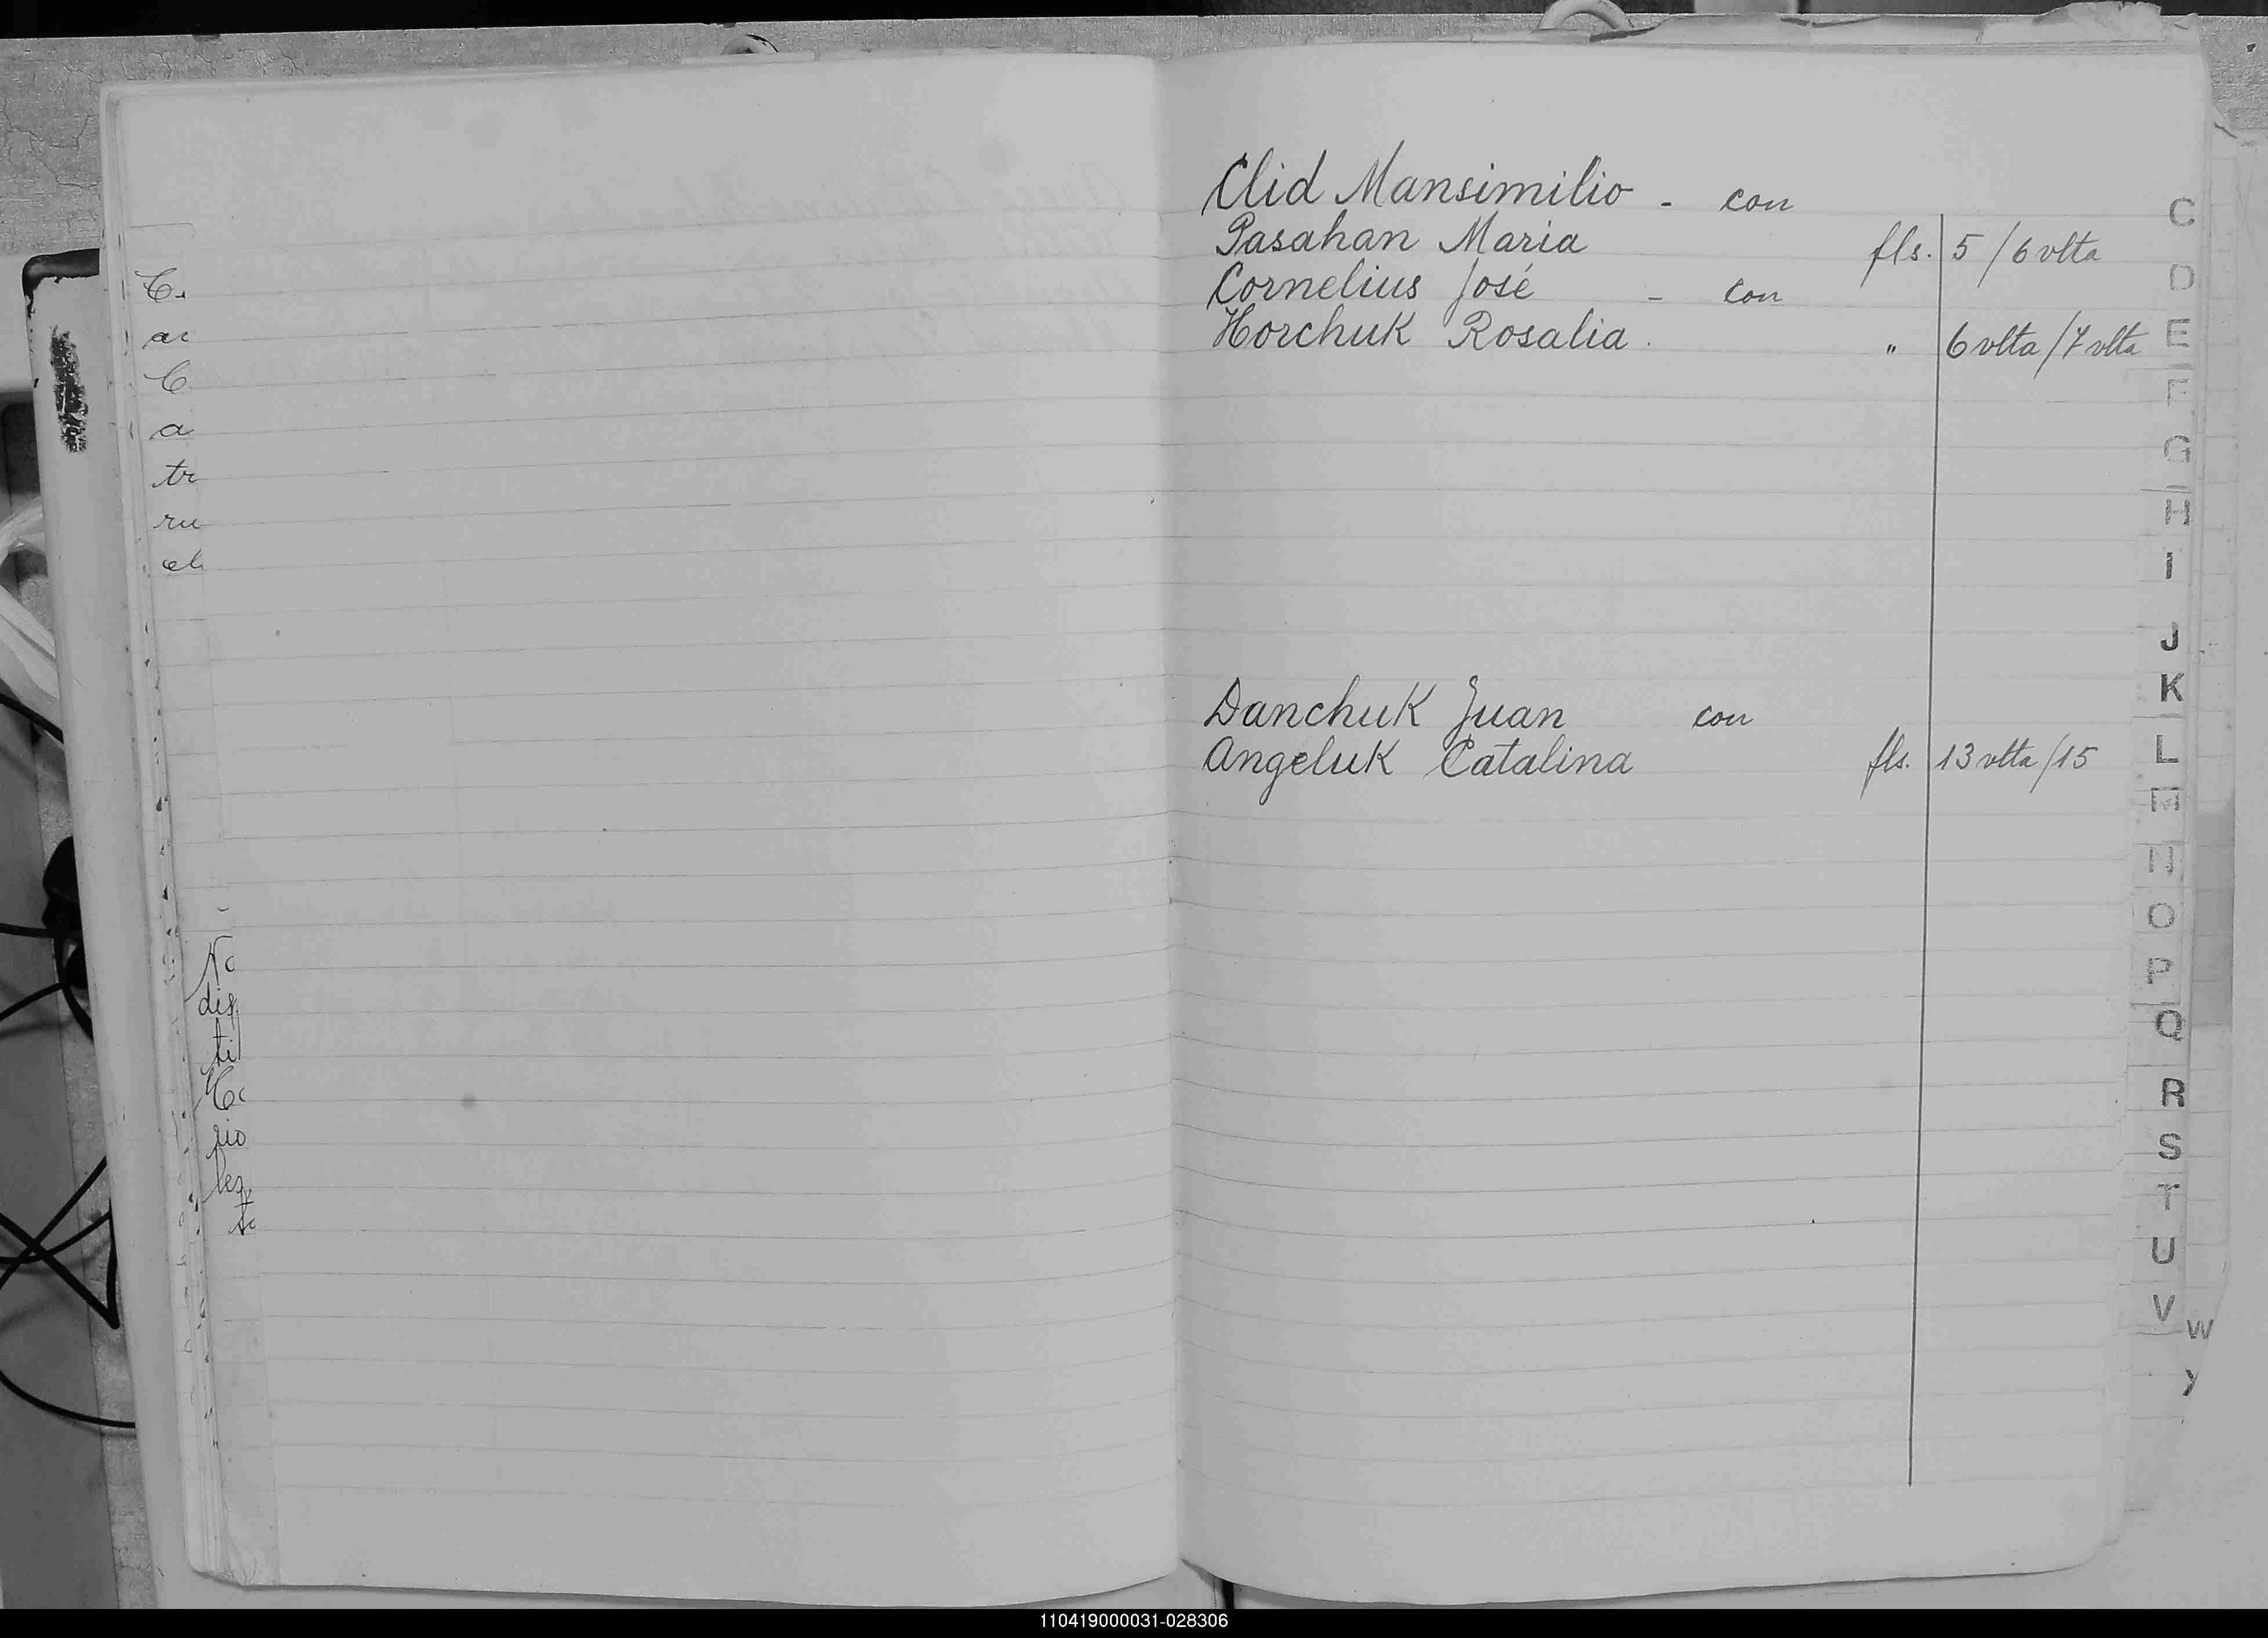 Clid Mansimilio - con
Pasahan Maria fls. 5/6 vlta
Cornelius José - con
Horchuk Rosalia. " 6 vlta/7 vlta
Danchuk Juan con
Angeluk Catalina fls. 13 vlta/15
C
D
E
F
G
H
I
J
K
L
M
N
O
P
Q
R
S
T
U
V
W
110419000031-028306